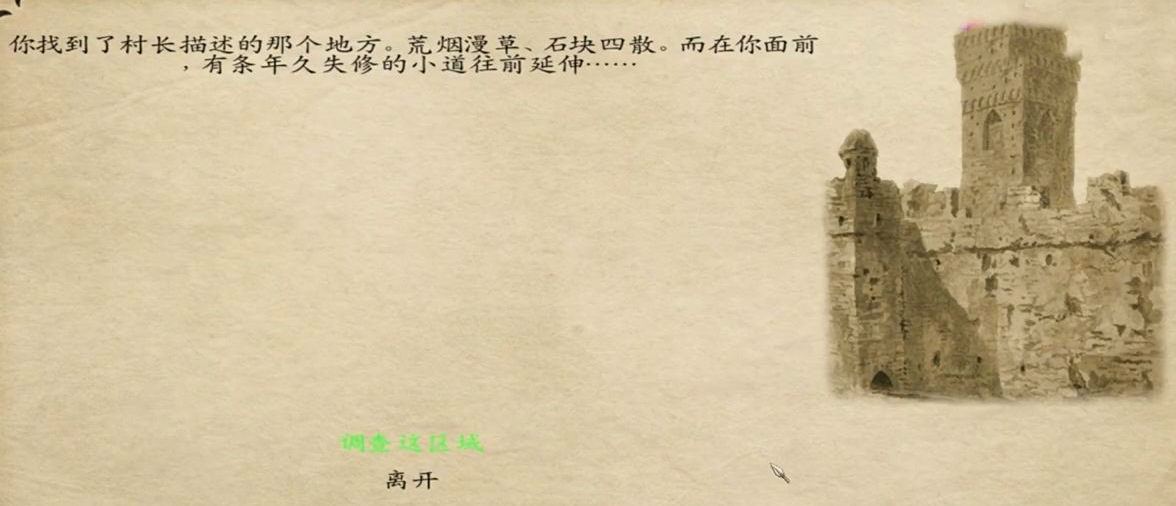 你找到了村长描述的那个地方。荒烟漫草、石块四散。而在你面前
，有条年久失修的小道往前延伸……
调查这区域
离开